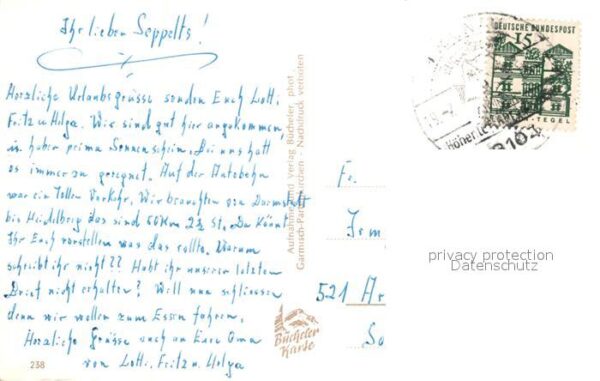 Ihr lieben Seppelts!
Herzliche Urlaubsgrüsse senden Euch Lott.
Fritz u Helga. Wir sind gut hier angekommen
u haben prima Sonnenschein. Bei uns hatt
es immer zu geregnet. Auf der Autobahn
war ein tollen Verkehr. Wir brauchten von Darmstadt
bis Heidelberg das sind 50Km 2½ St. Da könnt
Ihr Euch vorstellen was das sollte. Warum
schreibt ihr nicht?? Habt ihr unseren letzten
Brief nicht erhalten? Will nun schliessen
denn wir wollen zum Essen fahren.
Herzliche Grüsse auch an Eure Oma
von Lott. Fritz u Helga
238
Aufnahme und Verlag Bücheler phot
Garmisch-Partenkirchen Nachdruck verboten
Bücheler
Karte
DEUTSCHE BUNDESPOST
15
TEGEL
8104
Fr.
521
privacy protection
Datenschutz